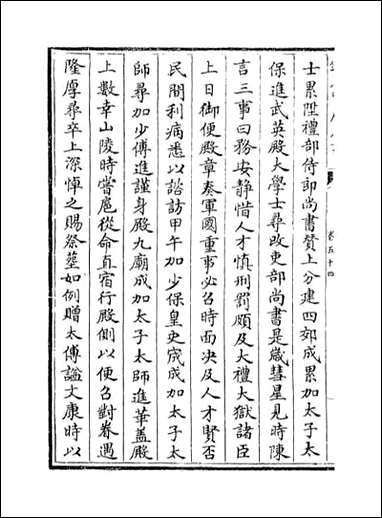 士累陞禮部侍郎尚書贊上分建四郊成累加太子太
保進武英殿大學士尋改吏部尚書是歲彗星見時陳
言三事曰務安靜惜人才慎刑罰頗及大禮大獄諸臣
上日御便殿章奏軍國重事必召時面决及人才賢否
民間利病悉以諮訪甲午加少保皇史宬成加太子太
師尋加少傅進謹身殿九廟成加太子太師進華蓋殿
上數幸山陵時嘗扈從命直宿行殿側以便召對眷遇
隆厚尋卒上深悼之賜祭塟如例贈太傅謚文康時以
卷五十四